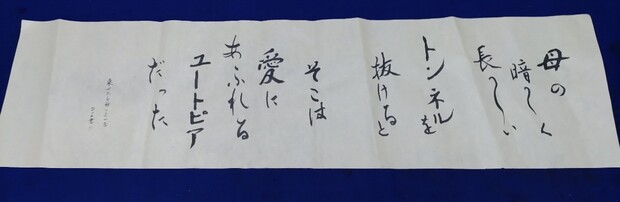 母の
暗〜く
長〜い
トンネルを
抜けると
そこは
愛に
あふれる
ユートピア
だった